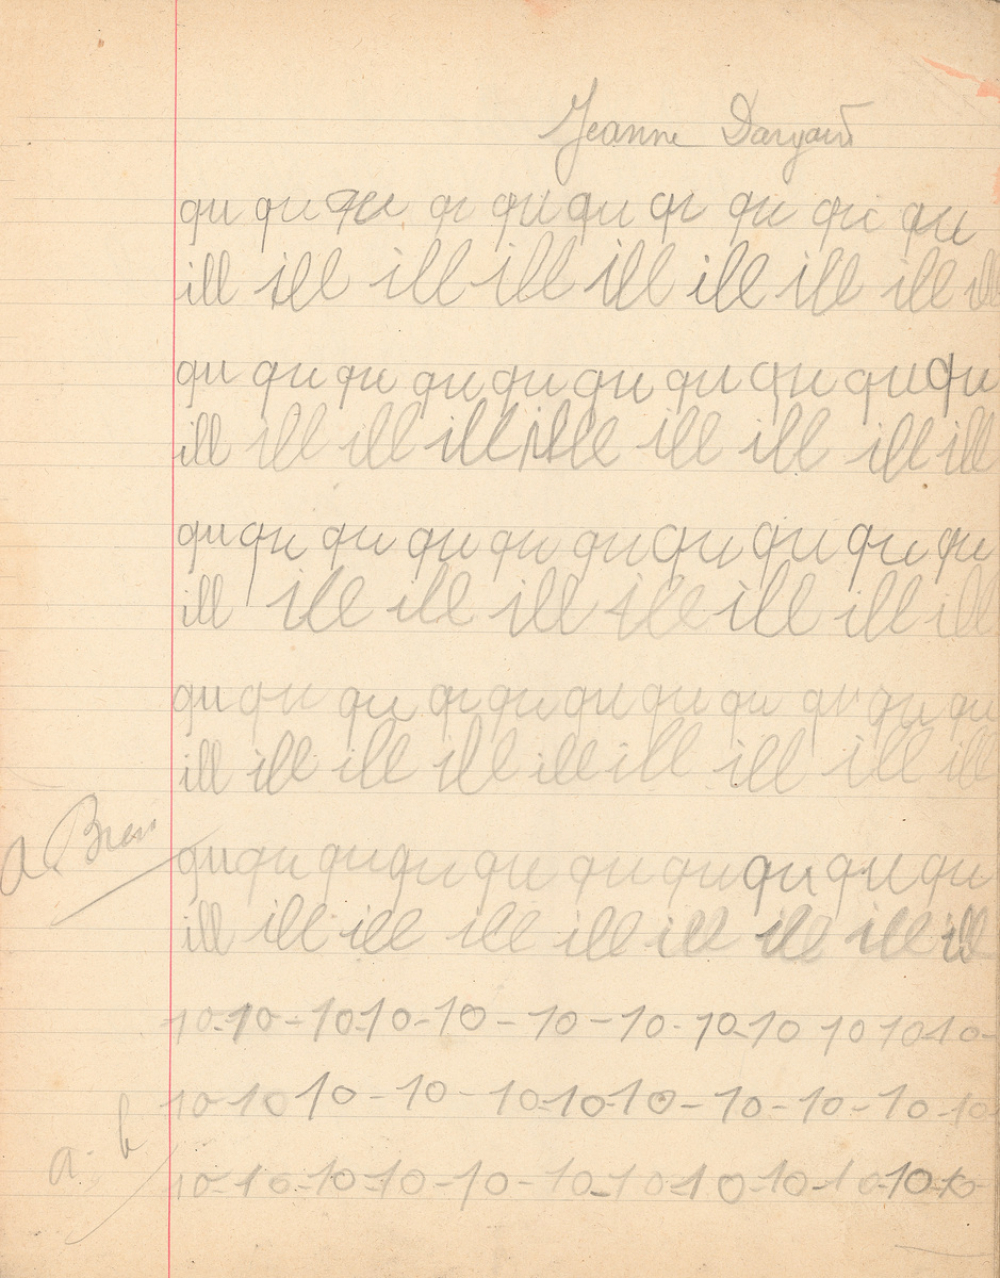 Jeanne
qu qu qu qu qu qu qu qu qu qu
ill ill ill ill ill ill ill ill ill
qu qu qu qu qu qu qu qu qu qu
ill ill ill ill ill ill ill ill ill
qu qu qu qu qu qu qu qu qu qu
ill ill ill ill ill ill ill ill
qu qu qu qu qu qu qu qu qu qu qu
ill ill ill ill ill ill ill ill ill
a Bien
qu qu qu qu qu qu qu qu qu qu
ill ill ill ill ill ill ill ill ill
10-10-10-10-10-10-10-10-10 10 10-10-
10-10 10-10-10-10-10-10-10-10-10
a. b
10-10-10-10-10-10-10-10-10-10-10-10-